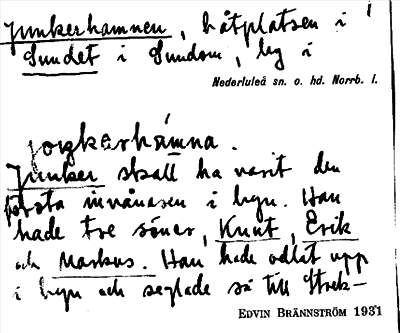 Junkerhamnen, båtplatsen i
Sundet i Sundom, by i
Nederluleå sn. o. hd. Norrb. l.
joŋkerhámna.
Junker skall ha varit den
första invånaren i byn. Han
hade tre söner, Knut, Erik
och Markus. Han hade odlat upp
i byn och seglade så till Stock-
EDVIN BRÄNNSTRÖM 1931